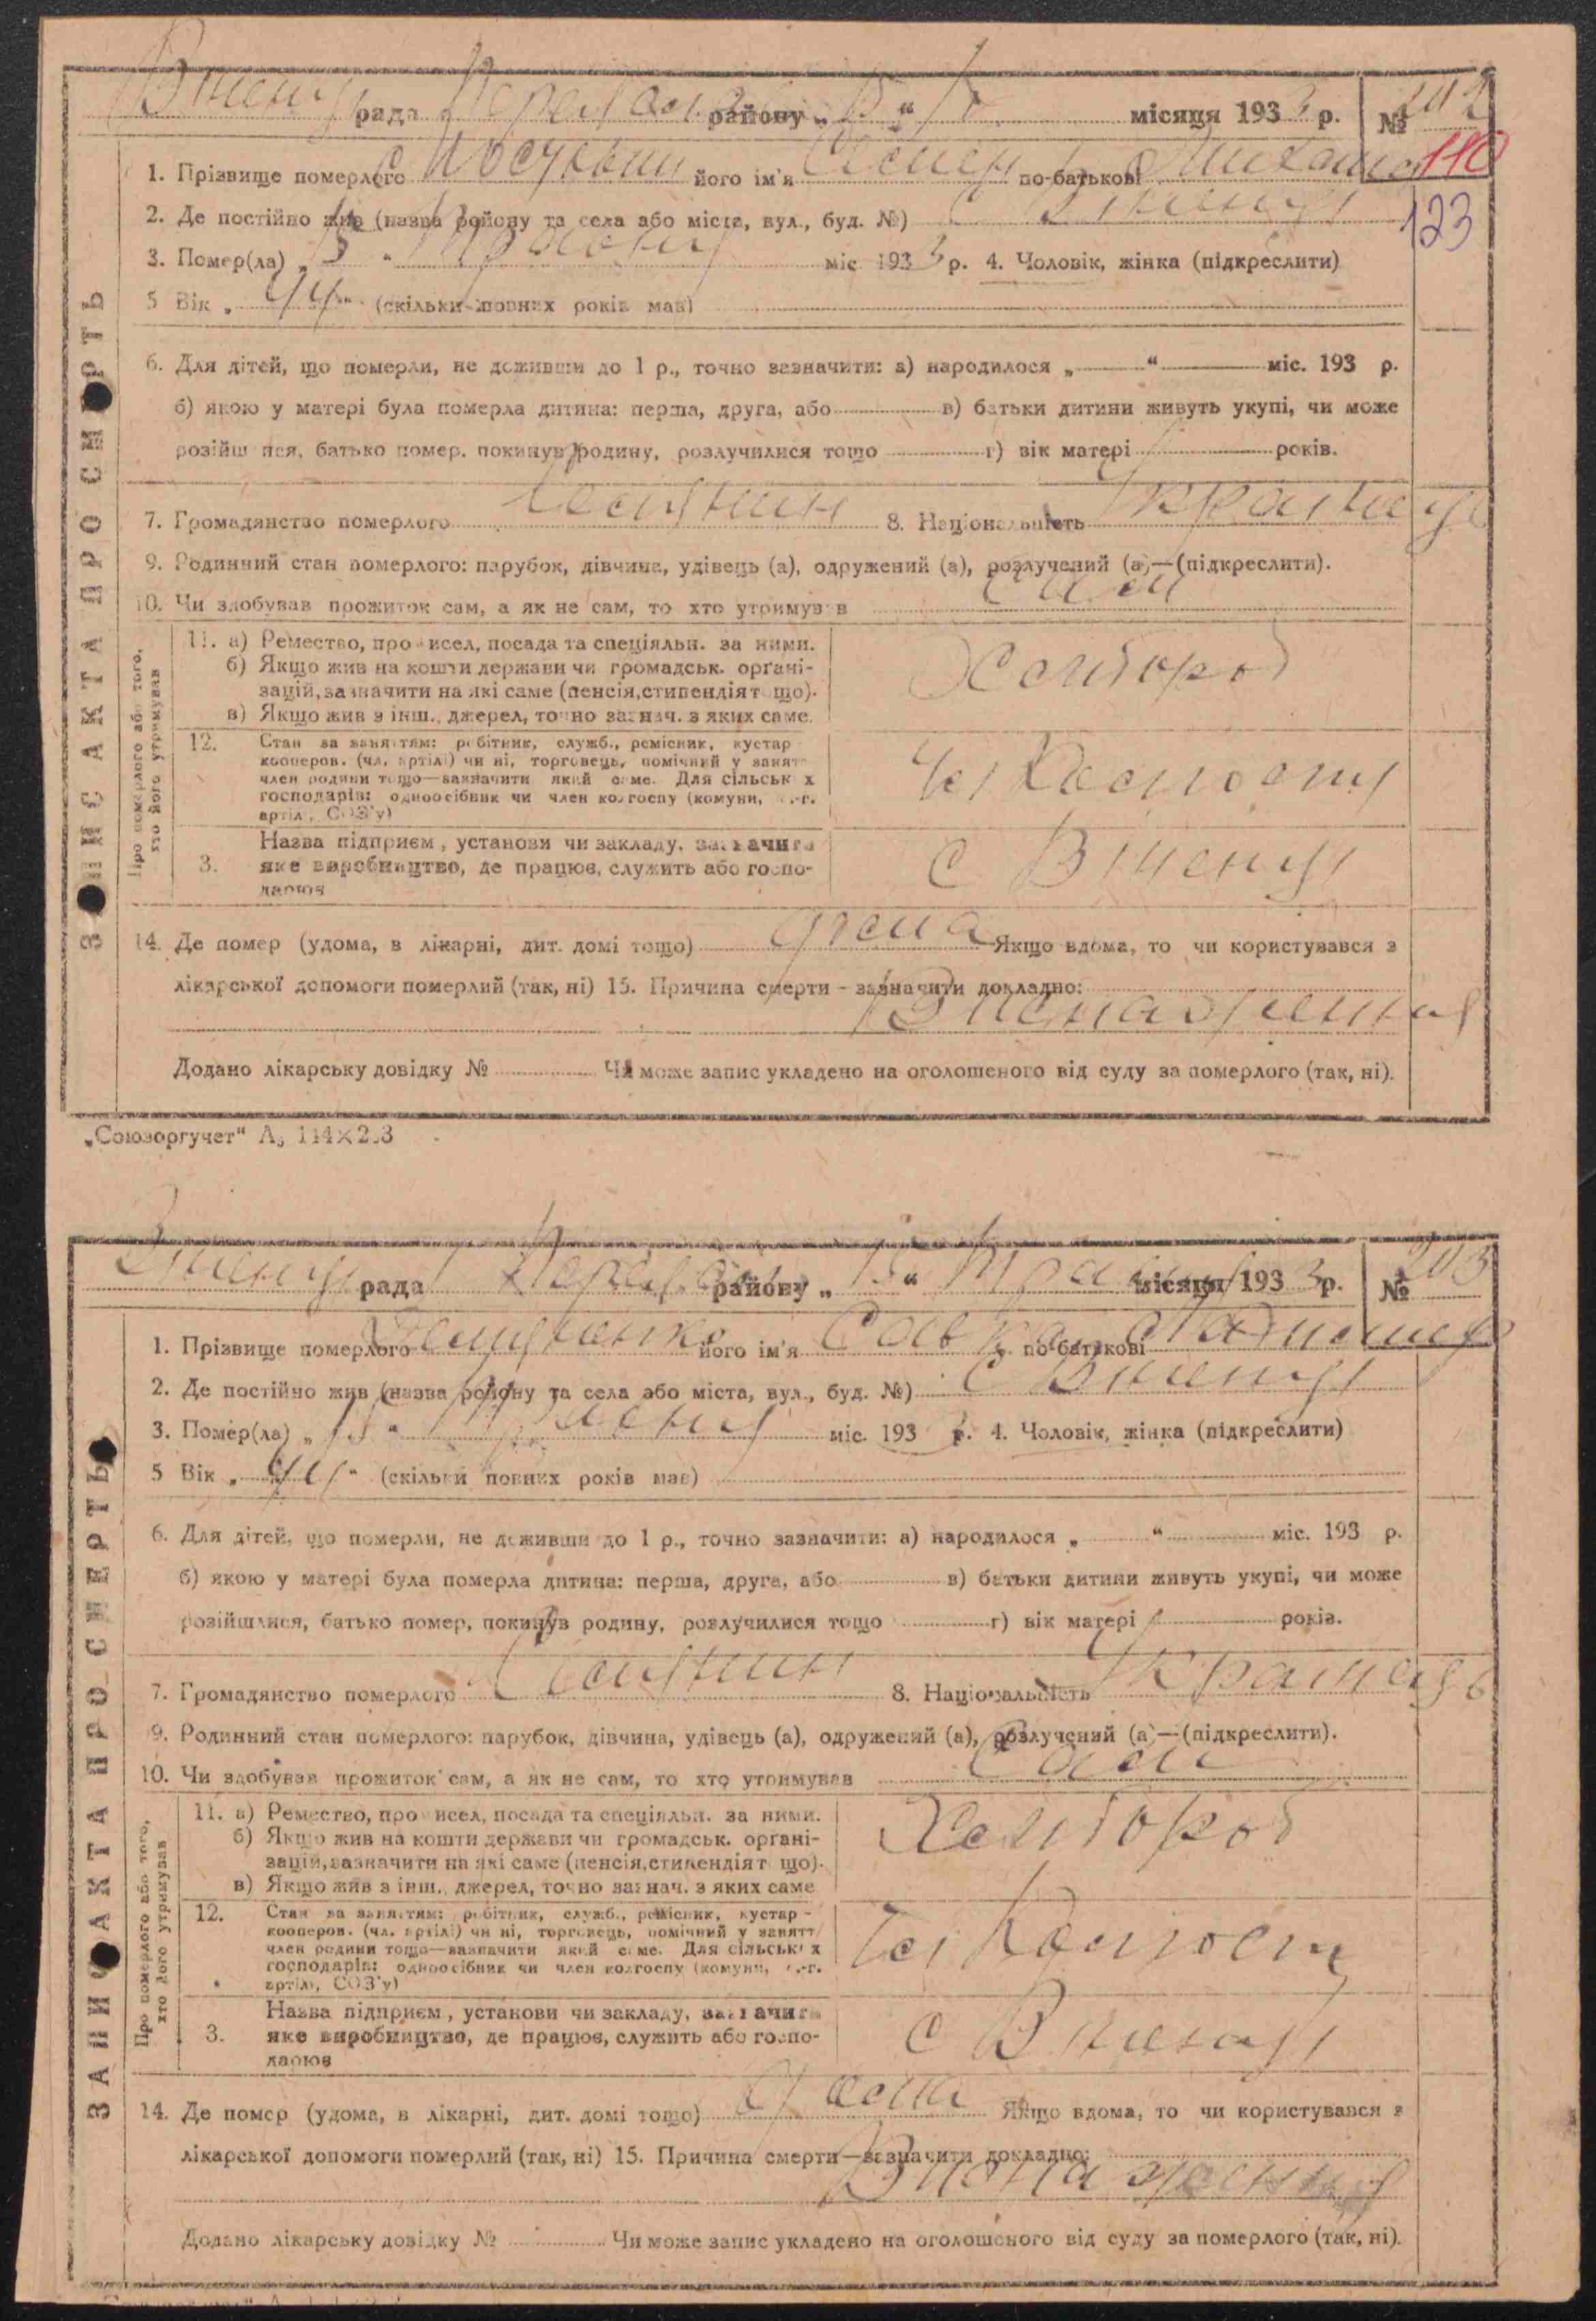 рада району „ “ місяця 1933 р. № 202
110
1. Прізвище померлого його ім'я Семен по-батькові
123
2. Де постійно жив (назва району та села або міста, вул., буд. №) с
3. Помер(ла) „ “ міс 1933 р. 4. Чоловік, жінка (підкреслити)
5 Вік „ 44 “ (скільки повних років мав)
6. Для дітей, що померли, не доживши до 1 р., точно зазначити: а) народилося „ “ міс. 193 р.
б) якою у матері була померла дитина: перша, друга, або в) батьки дитини живуть укупі, чи може
розійш лися, батько помер. покинув родину, розлучилися тощо г) вік матері років.
7. Громадянство померлого 8. Національність Українець
9. Родинний стан померлого: парубок, дівчина, удівець (а), одружений (а), розлучений (а)—(підкреслити).
10. Чи здобував прожиток сам, а як не сам, то хто утримував сам
ЗАПИС АКТА ПРО СМЕРТЬ
Про померлого або того, хто його утримував
11. а) Ремество, промисел, посада та спеціяльн. за ними. Хлібороб
б) Якщо жив на кошти держави чи громадськ. органі-
зацій, зазначити на які саме (пенсія, стипендія т що).
в) Якщо жив з інш., джерел, точно зазнач. з яких саме.
12. Стан за заняттям: робітник, служб., ремісник, кустар
кооперов. (чл. артілі) чи ні, торговець, помічний у занятт
член родини тощо—зазначити який саме. Для сільських
господарів: одноосібник чи член колгоспу (комуни, с.-г.
артілі, СОЗ'у)
Назва підприєм, установи чи закладу, зазначити
3. яке виробництво, де працює, служить або госпо-
дарює
14. Де помер (удома, в лікарні, дит. домі тощо) дома Якщо вдома, то чи користувався з
лікарської допомоги померлий (так, ні) 15. Причина смерти - зазначити докладно:
Виснаження
Додано лікарську довідку № Чи може запис укладено на оголошеного від суду за померлого (так, ні).
„Союзоргучет“
рада району „ “ Травня місяця 1933 р. № 203
1. Прізвище померлого його ім'я Сава по-батькові
2. Де постійно жив (назва району та села або міста, вул., буд. №) с
3. Помер(ла) „ “ міс. 1933 р. 4. Чоловік, жінка (підкреслити)
5 Вік „ “ (скільки повних років мав)
6. Для дітей, що померли, не доживши до 1 р., точно зазначити: а) народилося „ “ міс. 193 р.
б) якою у матері була померла дитина: перша, друга, або в) батьки дитини живуть укупі, чи може
розійшлися, батько помер, покинув родину, розлучилися тощо г) вік матері років.
7. Громадянство померлого 8. Національність Українець
9. Родинний стан померлого: парубок, дівчина, удівець (а), одружений (а), розлучений (а)—(підкреслити).
10. Чи здобував прожиток сам, а як не сам, то хто утримував сам
ЗАПИС АКТА ПРО СМЕРТЬ
Про померлого або того, хто його утримував
11. а) Ремество, промисел, посада та спеціяльн. за ними. Хлібороб
б) Якщо жив на кошти держави чи громадськ. органі-
зацій, зазначити на які саме (пенсія, стипендія т що).
в) Якщо жив з інш., джерел, точно зазнач. з яких саме
12. Стан за заняттям: робітник, служб., ремісник, кустар -
кооперов. (чл. артілі) чи ні, торговець, помічний у занятт
член родини тощо—зазначити який саме. Для сільських
господарів: одноосібник чи член колгоспу (комуни, с.-г.
артілі, СОЗ'у)
Назва підприєм, установи чи закладу, зазначити
3. яке виробництво, де працює, служить або госпо-
дарює
14. Де помер (удома, в лікарні, дит. домі тощо) дома Якщо вдома, то чи користувався з
лікарської допомоги померлий (так, ні) 15. Причина смерти—зазначити докладно:
Виснаження
Додано лікарську довідку № Чи може запис укладено на оголошеного від суду за померлого (так, ні).